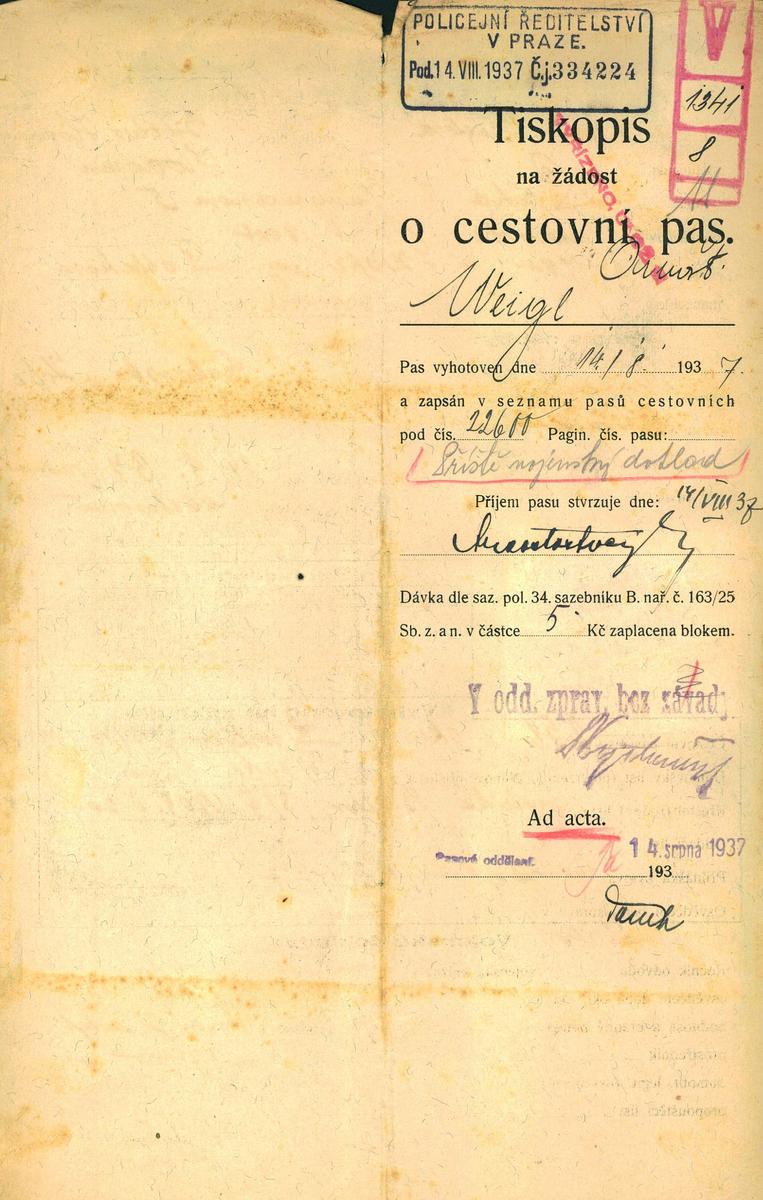 POLICEJNÍ ŘEDITELSTVÍ
V PRAZE.
Pod. 14. VIII. 1937 Č.j. 334224
V
1341
8
11
Tiskopis
na žádost
o cestovní pas.
Weigl
Pas vyhotoven dne 14./8. 1937.
a zapsán v seznamu pasů cestovních
pod čís. 22600 Pagin. čís. pasu:
Příště vojenský doklad
Příjem pasu stvrzuje dne: 14/VIII 37
Dávka dle saz. pol. 34. sazebníku B. nař. č. 163/25
Sb. z. a n. v částce 5 Kč zaplacena blokem.
V odd. zprav. bez závad
Ad acta.
Pasové oddělení. 14. srpna 1937
193